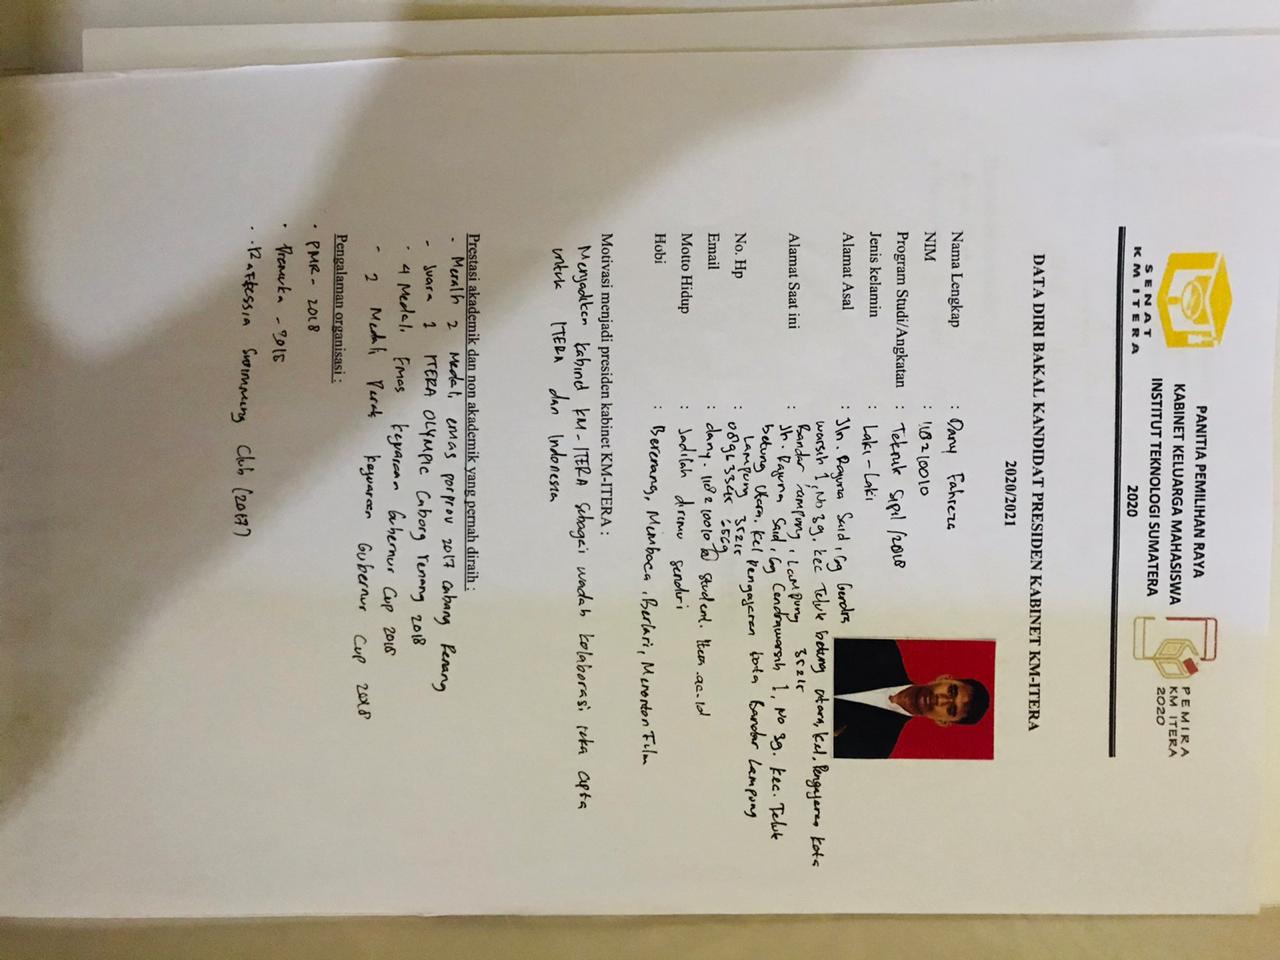 SENAT
KM ITERA
PANITIA PEMILIHAN RAYA
KABINET KELUARGA MAHASISWA
INSTITUT TEKNOLOGI SUMATERA
2020
PEMIRA
KM ITERA
2020
DATA DIRI BAKAL KANDIDAT PRESIDEN KABINET KM-ITERA
2020/2021
Nama Lengkap : Dany Fahreza
NIM : 118210010
Program Studi/Angkatan : Teknik Sipil /2018
Jenis kelamin : Laki-Laki
Alamat Asal : Jln. Said, Gg
warsih 1, No 39. kec Teluk betung utara, kel. Pengajaran, kota
Bandar Lampung, Lampung 35215
Alamat Saat ini : Jln. Said, Gg Cendrawasih 1, No 39. kec. Teluk
betung Utara. kel Pengajaran kota Bandar Lampung
Lampung 35215
No. Hp :
Email : dany.118210010@student.itera.ac.id
Motto Hidup : Jadilah dirimu sendiri
Hobi : Berenang, Membaca, Berlari, Menonton Film
Motivasi menjadi presiden kabinet KM-ITERA :
Menjadikan kabinet KM-ITERA sebagai wadah kolaborasi cipta
untuk ITERA dan Indonesia
Prestasi akademik dan non akademik yang pernah diraih :
- Meraih 2 Medali emas porprov 2017 cabang Renang
- Juara 1 ITERA OLYMPIC Caborg renang 2018
- 4 Medali Emas kejuaraan Gubernur Cup 2018
- 2 Medali Perak kejuaraan Gubernur Cup 2018
Pengalaman organisasi :
• PMR - 2018
• Pramuka - 2015
• Rafflessia Swimming Club (2017)